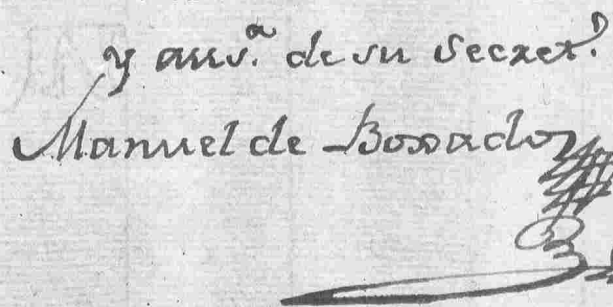 y aus.ª de su Secret.º
Manuel de Borrado